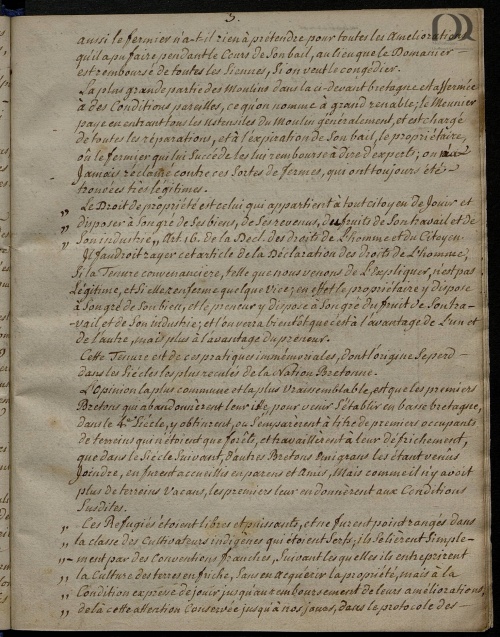 3.
aussi le fermier n'a-t-il rien à prétendre pour toutes les Améliorations
qu'il a pu faire pendant le Cours de Son bail, au lieu que le Domanier
est remboursé de toutes les Siennes, Si on veut le congédier.
La plus grande partie des Moulins dans la ci-devant bretagne est affermée
à des Conditions pareilles, ce qu'on nomme à grand renable; le Meunier
paye en entrant tous les Ustensiles du Moulin généralement, et est chargé
de toutes les réparations, et à l'expiration de Son bail, le propriétaire,
où le fermier qui lui Succède les lui rembourse à Dire d'experts; on n'a
Jamais réclamé contre ces Sortes de fermes, qui ont toujours été
trouvées très légitimes.
„ Le Droit de propriété est celui qui appartient à tout citoyen de Jouir et
„ disposer à Son gré de Ses biens, de Ses revenus, du fruits de Son travail et de
„ Son industrie,, Art. 16. de la Décl. des droits de L'homme et du Citoyen.
Il faudroit rayer cet article de la Déclaration des droits de L'homme,
Si la Tenure convenancière, telle que nous venons de L'Expliquer, n'est pas
Légitime, et Si elle renferme quelque Vice; en effet le propriétaire y dispose
à Son gré de Son bien, et le preneur y dispose à Son gré du fruit de Son tra-
-vail et de Son industrie; et l'on verra bientôt que c'est à l'avantage de L'un et
de l'autre, mais plus à l'avantage du preneur.
Cette Tenure est de ces pratiques immémoriales, dont l'origine Se perd
dans les Siècles les plus reculés de la Nation Bretonne.
L'Opinion la plus commune et la plus Vraisemblable, est que les premiers
Bretons qui abandonnèrent leur isle, pour venir S'établir en basse bretagne,
dans le 4.e Siècle, y obtinrent, ou S'emparèrent à titre de premiers occupants
de terreins qui n'étoient que forêts, et travaillèrent à leur défrichement,
que dans le Siècle Suivant, d'autres Bretons Emigrans les étant venus
Joindre, en furent accueillis en parens et Amis, Mais comme il n'y avoit
plus de terreins Vacans, les premiers leur en donnèrent aux Conditions
Susdites.
„ Ces Réfugiés étoient libres et puissants, et ne furent point rangés dans
„ la classe des Cultivateurs indigènes qui étoient Serfs; ils Se lièrent Simple-
„ -ment par des Conventions franches, Suivant lesquelles ils entreprirent
„ la Culture des terres en friche, Sans en acquérir la propriété, mais à la
„ Condition expresse de jouir jusqu'au remboursement de leurs améliorations,
„ de là cette attention Conservée jusqu'à nos jours, dans le protocole des